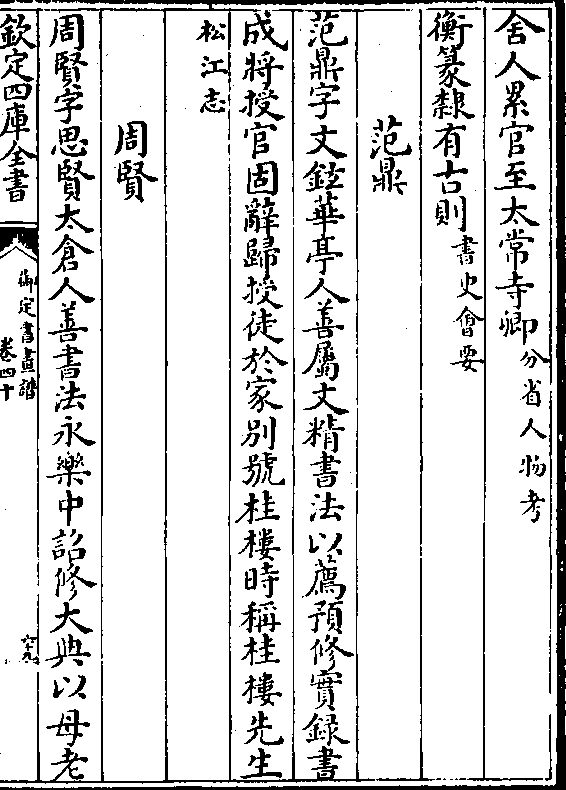 舍人累官至太常寺卿分省人物考
衡篆隸有古則書史會要
范鼎
范鼎字文鉉華亭人善屬文精書法以薦預修實録書
成將授官固辭歸授徒於家别號桂樓時稱桂樓先生
松江志
周賢
周賢字思賢太倉人善書法永樂中詔修大典以母老
欽定四庫全書
御定書畫譜
卷四十